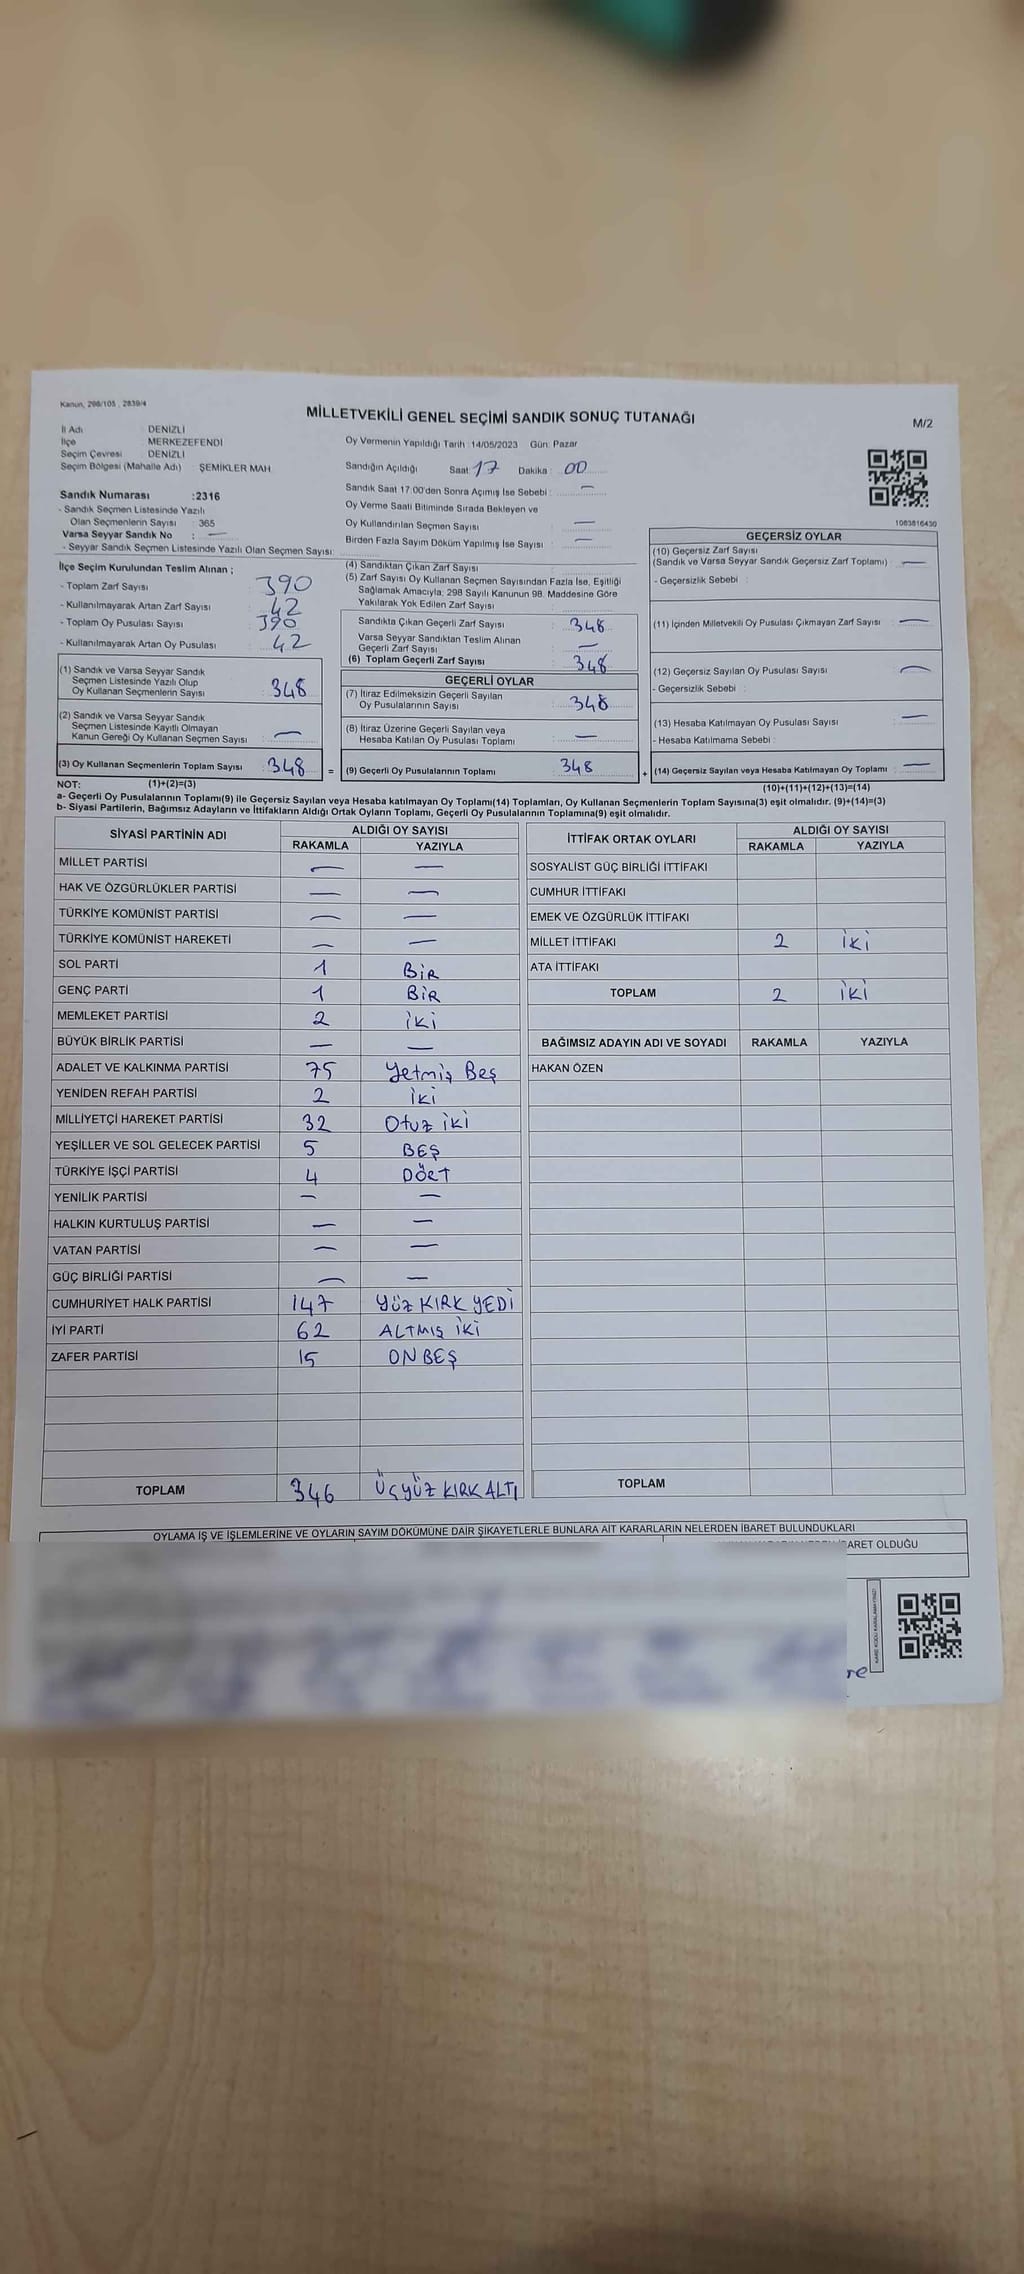 Kanun, 298/105 , 2839/4
MİLLETVEKİLİ GENEL SEÇİMİ SANDIK SONUÇ TUTANAĞI
M/2
İl Adı : DENİZLİ
İlçe : MERKEZEFENDİ
Seçim Çevresi : DENİZLİ
Seçim Bölgesi (Mahalle Adı) : ŞEMİKLER MAH
Sandık Numarası :2316
- Sandık Seçmen Listesinde Yazılı
Olan Seçmenlerin Sayısı : 365
Varsa Seyyar Sandık No : —
- Seyyar Sandık Seçmen Listesinde Yazılı Olan Seçmen Sayısı:
Oy Vermenin Yapıldığı Tarih :14/05/2023 Gün: Pazar
Sandığın Açıldığı Saat: 17 Dakika : 00
Sandık Saat 17:00'den Sonra Açımış İse Sebebi : —
Oy Verme Saati Bitiminde Sırada Bekleyen ve
Oy Kullandırılan Seçmen Sayısı : —
Birden Fazla Sayım Döküm Yapılmış İse Sayısı : —
1083816430
İlçe Seçim Kurulundan Teslim Alınan ;
- Toplam Zarf Sayısı : 390
- Kullanılmayarak Artan Zarf Sayısı : 42
- Toplam Oy Pusulası Sayısı : 390
- Kullanılmayarak Artan Oy Pusulası : 42
(1) Sandık ve Varsa Seyyar Sandık
Seçmen Listesinde Yazılı Olup
Oy Kullanan Seçmenlerin Sayısı : 348
(2) Sandık ve Varsa Seyyar Sandık
Seçmen Listesinde Kayıtlı Olmayan
Kanun Gereği Oy Kullanan Seçmen Sayısı : —
(3) Oy Kullanan Seçmenlerin Toplam Sayısı : 348 =
(4) Sandıktan Çıkan Zarf Sayısı :
(5) Zarf Sayısı Oy Kullanan Seçmen Sayısından Fazla İse, Eşitliği
Sağlamak Amacıyla; 298 Sayılı Kanunun 98. Maddesine Göre
Yakılarak Yok Edilen Zarf Sayısı :
Sandıkta Çıkan Geçerli Zarf Sayısı : 348
Varsa Seyyar Sandıktan Teslim Alınan
Geçerli Zarf Sayısı : —
(6) Toplam Geçerli Zarf Sayısı : 348
GEÇERLİ OYLAR
(7) İtiraz Edilmeksizin Geçerli Sayılan
Oy Pusulalarının Sayısı : 348
(8) İtiraz Üzerine Geçerli Sayılan veya
Hesaba Katılan Oy Pusulası Toplamı : —
(9) Geçerli Oy Pusulalarının Toplamı : 348 +
GEÇERSİZ OYLAR
(10) Geçersiz Zarf Sayısı
(Sandık ve Varsa Seyyar Sandık Geçersiz Zarf Toplamı) : —
- Geçersizlik Sebebi :
(11) İçinden Milletvekili Oy Pusulası Çıkmayan Zarf Sayısı : —
(12) Geçersiz Sayılan Oy Pusulası Sayısı : —
- Geçersizlik Sebebi :
(13) Hesaba Katılmayan Oy Pusulası Sayısı : —
- Hesaba Katılmama Sebebi :
(14) Geçersiz Sayılan veya Hesaba Katılmayan Oy Toplamı : —
NOT: (1)+(2)=(3)
(10)+(11)+(12)+(13)=(14)
a- Geçerli Oy Pusulalarının Toplamı(9) ile Geçersiz Sayılan veya Hesaba katılmayan Oy Toplamı(14) Toplamları, Oy Kullanan Seçmenlerin Toplam Sayısına(3) eşit olmalıdır. (9)+(14)=(3)
b- Siyasi Partilerin, Bağımsız Adayların ve İttifakların Aldığı Ortak Oyların Toplamı, Geçerli Oy Pusulalarının Toplamına(9) eşit olmalıdır.
SİYASİ PARTİNİN ADI ALDIĞI OY SAYISI
RAKAMLA YAZIYLA
MİLLET PARTİSİ — —
HAK VE ÖZGÜRLÜKLER PARTİSİ — —
TÜRKİYE KOMÜNİST PARTİSİ — —
TÜRKİYE KOMÜNİST HAREKETİ — —
SOL PARTİ 1 BİR
GENÇ PARTİ 1 BİR
MEMLEKET PARTİSİ 2 iki
BÜYÜK BİRLİK PARTİSİ — —
ADALET VE KALKINMA PARTİSİ 75 Yetmiş Beş
YENİDEN REFAH PARTİSİ 2 iki
MİLLİYETÇİ HAREKET PARTİSİ 32 Otuz iki
YEŞİLLER VE SOL GELECEK PARTİSİ 5 BEŞ
TÜRKİYE İŞÇİ PARTİSİ 4 DÖRT
YENİLİK PARTİSİ — —
HALKIN KURTULUŞ PARTİSİ — —
VATAN PARTİSİ — —
GÜÇ BİRLİĞİ PARTİSİ — —
CUMHURİYET HALK PARTİSİ 147 YÜZ KIRK YEDİ
İYİ PARTİ 62 ALTMIŞ İKİ
ZAFER PARTİSİ 15 ON BEŞ
TOPLAM 346 ÜÇYÜZ KIRK ALTI
İTTİFAK ORTAK OYLARI ALDIĞI OY SAYISI
RAKAMLA YAZIYLA
SOSYALİST GÜÇ BİRLİĞİ İTTİFAKI
CUMHUR İTTİFAKI
EMEK VE ÖZGÜRLÜK İTTİFAKI
MİLLET İTTİFAKI 2 iki
ATA İTTİFAKI
TOPLAM 2 iki
BAĞIMSIZ ADAYIN ADI VE SOYADI RAKAMLA YAZIYLA
HAKAN ÖZEN
TOPLAM
OYLAMA İŞ VE İŞLEMLERİNE VE OYLARIN SAYIM DÖKÜMÜNE DAİR ŞİKAYETLERLE BUNLARA AİT KARARLARIN NELERDEN İBARET BULUNDUKLARI
İBARET OLDUĞU
KARE KODU KARALAMAYINIZ!
re